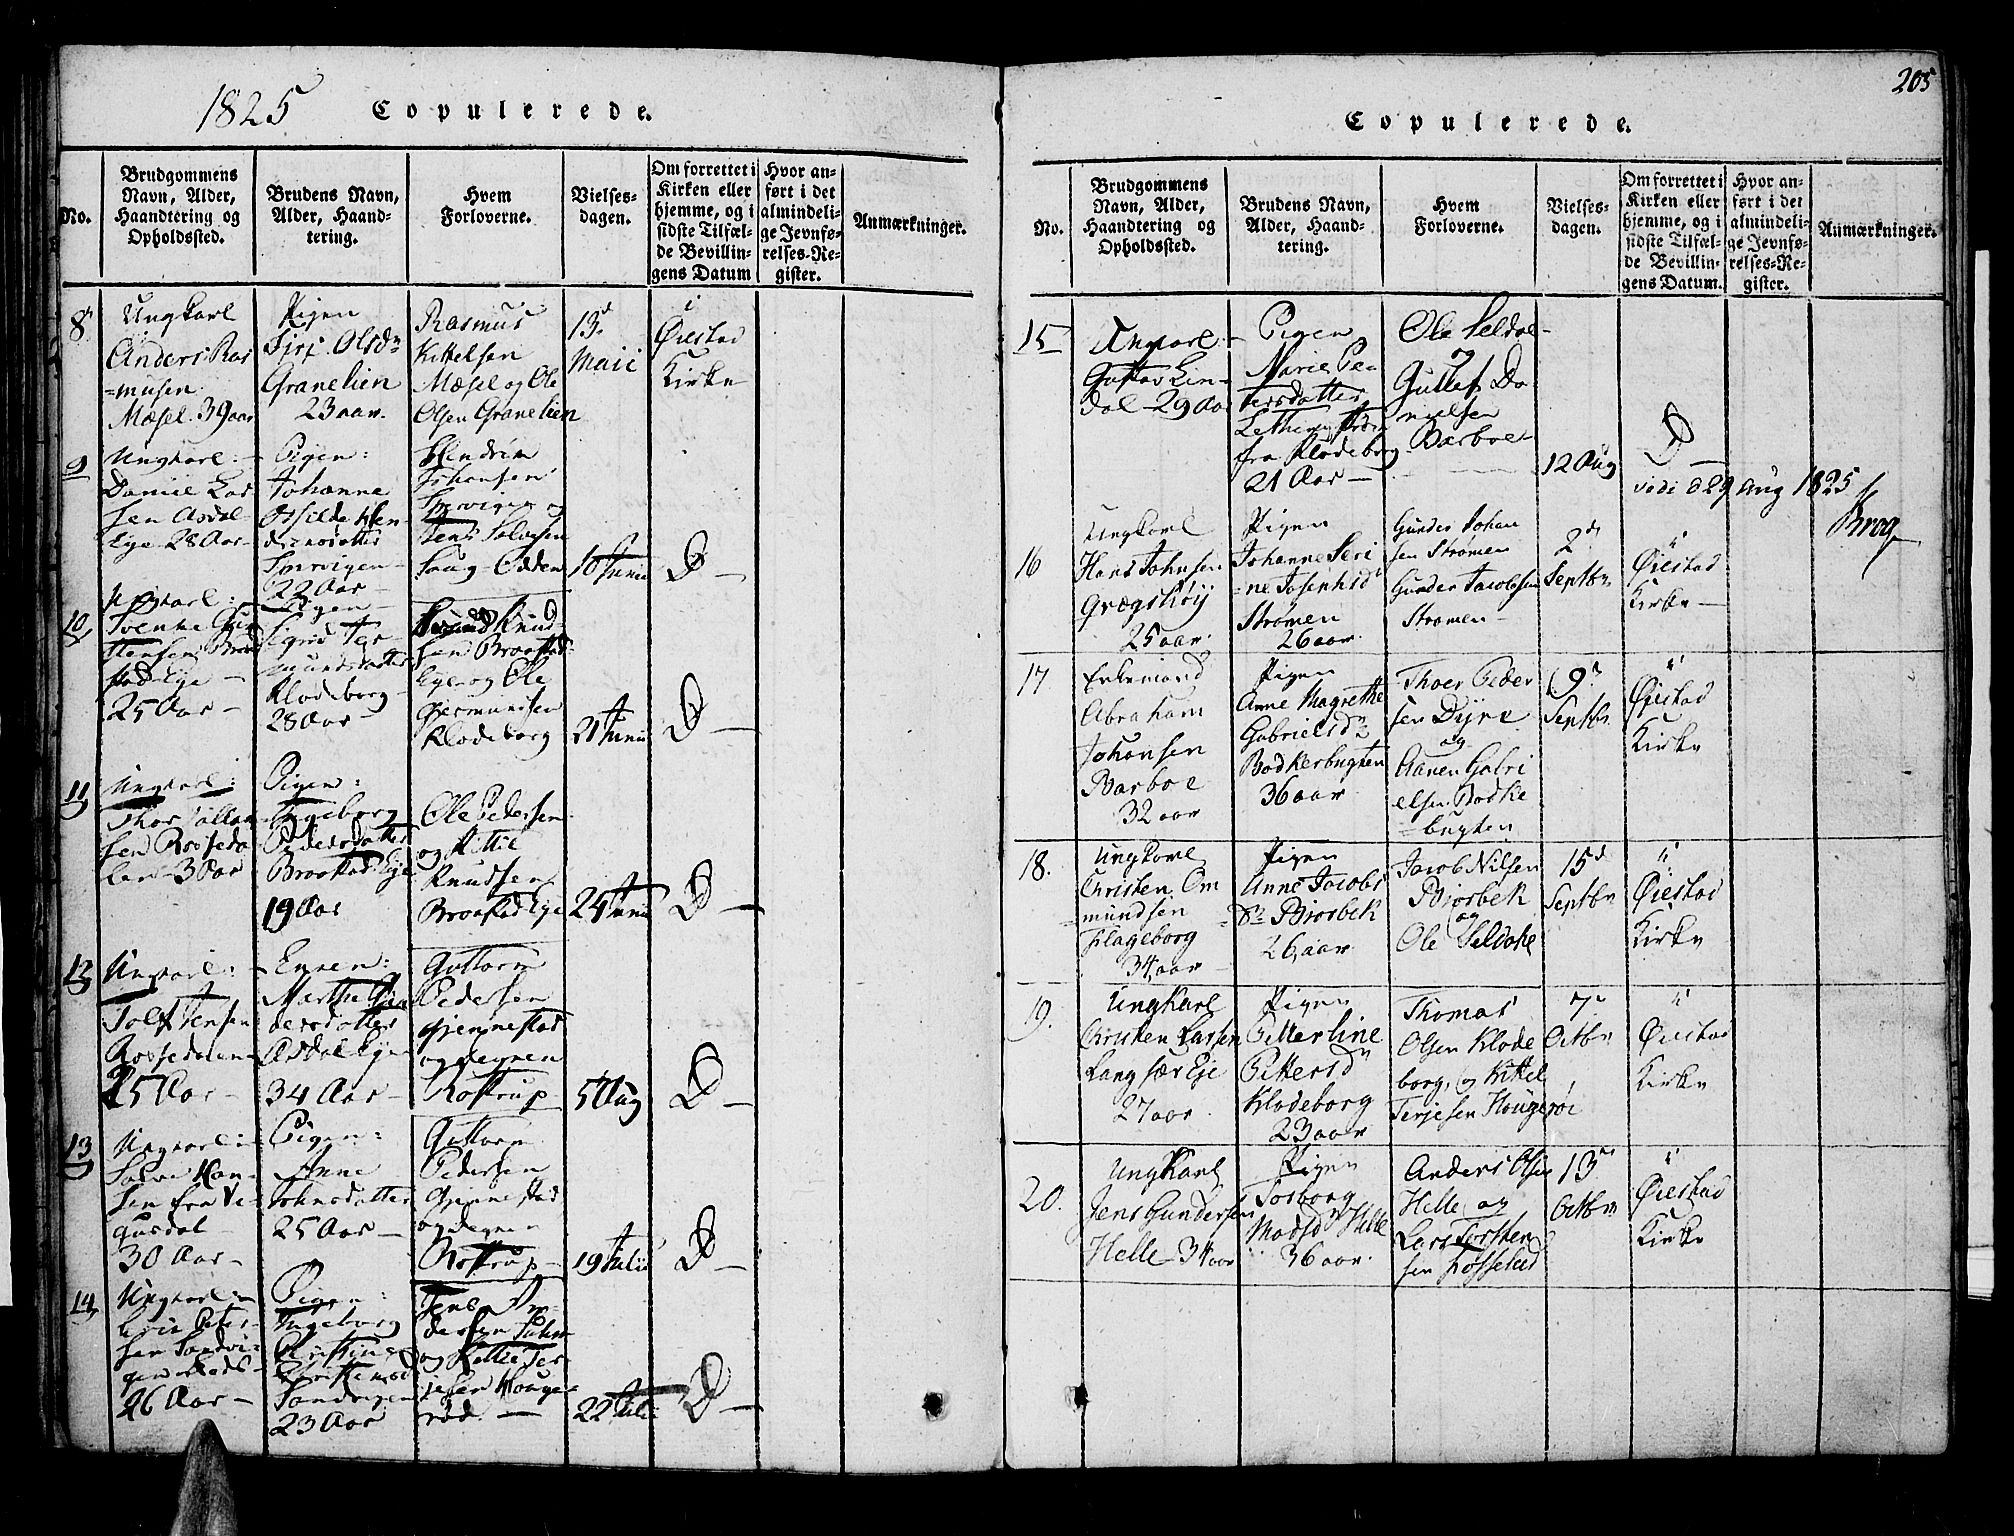 1825 Copulerede.
No.
Brudgommens
Navn, Alder,
Haandtering og
Opholdssted.
Brudens Navn,
Alder, Haand-
tering.
Hvem
Forloverne.
Vielses-
dagen.
Om forrettet i
Kirken eller
hjemme, og i
sidste Tilfæl-
de Bevillin-
gens Datum
Hvor an-
ført i det
almindeli-
ge Jevnfø-
relses-Re-
gister.
Anmærkninger.
8
Ungkarl
Anders Ras
=musen
Mæsel. 39 aar
Pigen
Olsdr
Granelien
23 aar.
Rasmus
Kittelsen
Mæsel og Ole
Olsen Granelien
13d
Maii
i
Øiestad
Kirke
9
Ungkarl:
Daniel Lar
sen Asdal-
Eye 28 Aar
Pigen:
Johanne
22 Aar
Johansen
Odden
10 Junii
D
10
Ungkarl:
25 Aar
Pigen
Klodeborg
28 Aar
Knud-
sen Brostad
Eye og Ole
Klodeborg
21 Junii
D
11
Ungkarl:
Thor
30 Aar
Pigen:
Ingeborg
Pedersdatter
Brostad Eye
19 Aar
Ole Pedersen
og Kittil
Knudsen
Brostad Eye
24 Junii
D
12
Ungkarl:
Jensen
25 Aar
Enken:
Marthe
Asdal Eye
34 Aar
Guttorm
Pedersen
Gjennestad
og degnen
Rostrup
5 Aug
D
13
Ungkarl
Han-
sen fra Ve-
gusdal
30 Aar
Pigen:
Anne
Johnsdatter
25 Aar
Guttorm
Pedersen
Gjennestad
og degnen
Rostrup
19 Julii
D
14
Ungkarl
Peter-
sen Sandvi-
gen
26 Aar
Pigen:
Ingeborg
Sandvigen
23 Aar
Jens An-
dersen
og Kittil Ter-
jesen Houge-
rød
22 Julii
D
205
Copulerede.
No.
Brudgommens
Navn, Alder,
Haandtering og
Opholdssted.
Brudens Navn,
Alder, Haand-
tering.
Hvem
Forloverne.
Vielses-
dagen.
Om forrettet i
Kirken eller
hjemme, og i
sidste Tilfæl-
de Bevillin-
gens Datum.
Hvor an-
ført i det
almindeli-
ge Jevnfø-
relses-Re-
gister.
Anmærkninger.
15
Ungkarl
Gustav Lin-
dal 29 Aar
Pigen
Marie Pe-
tersdatter
fra Klodeborg
21 Aar
Ole Seldal
Da-
nielsen
Barboe
12 Aug
D
vidi d 29 Aug 1825
Krog
16
Ungkarl
Hans Johnsen
25 aar.
Pigen
Johanne Seri
=ne Josephsdr
Strømen
26 aar.
Gunder Johan
sen Strømen
Gunder Jacobsen
Strømen
2d
Septbr
"
Øiestad
Kirke
17
Enkemand
Abraham
Johansen
Barboe
32 aar
Pigen
Anne Magrethe
Gabrielsdr
Bodkerbugten
36 aar
Thoer Peder
sen Dyne
og
Aanen Gabri
elsen Bodke
=bugten
9d
Septbr
"
Øiestad
Kirke
18.
Ungkarl
Christen Om
=mundsen
Flageborg
34 aar
Pigen
Anne Jacobs
=dr Biorbek
26 aar
Jacob Nilsen
Biorbek
og
Ole Seldahl
15d
Septbr
"
Øiestad
Kirke
19.
Ungkarl
Christen Larsen
Langsær Eje
27 aar
Pigen
Petterline
Pettersdr
Klodeborg
23 aar
Thomas
Olsen Klode
borg, og Kittel
Terjesen Hougerøi
7d
Octbr
"
Øiestad
Kirke
20.
Ungkarl
Jens Gundersen
Helle 34 aar
Pigen
Torborg
Madsdr Helle
36 aar.
Anders Olsen
Helle og
Lars Torsten
sen Fosselid
13d
Octbr
"
Øiestad
Kirke